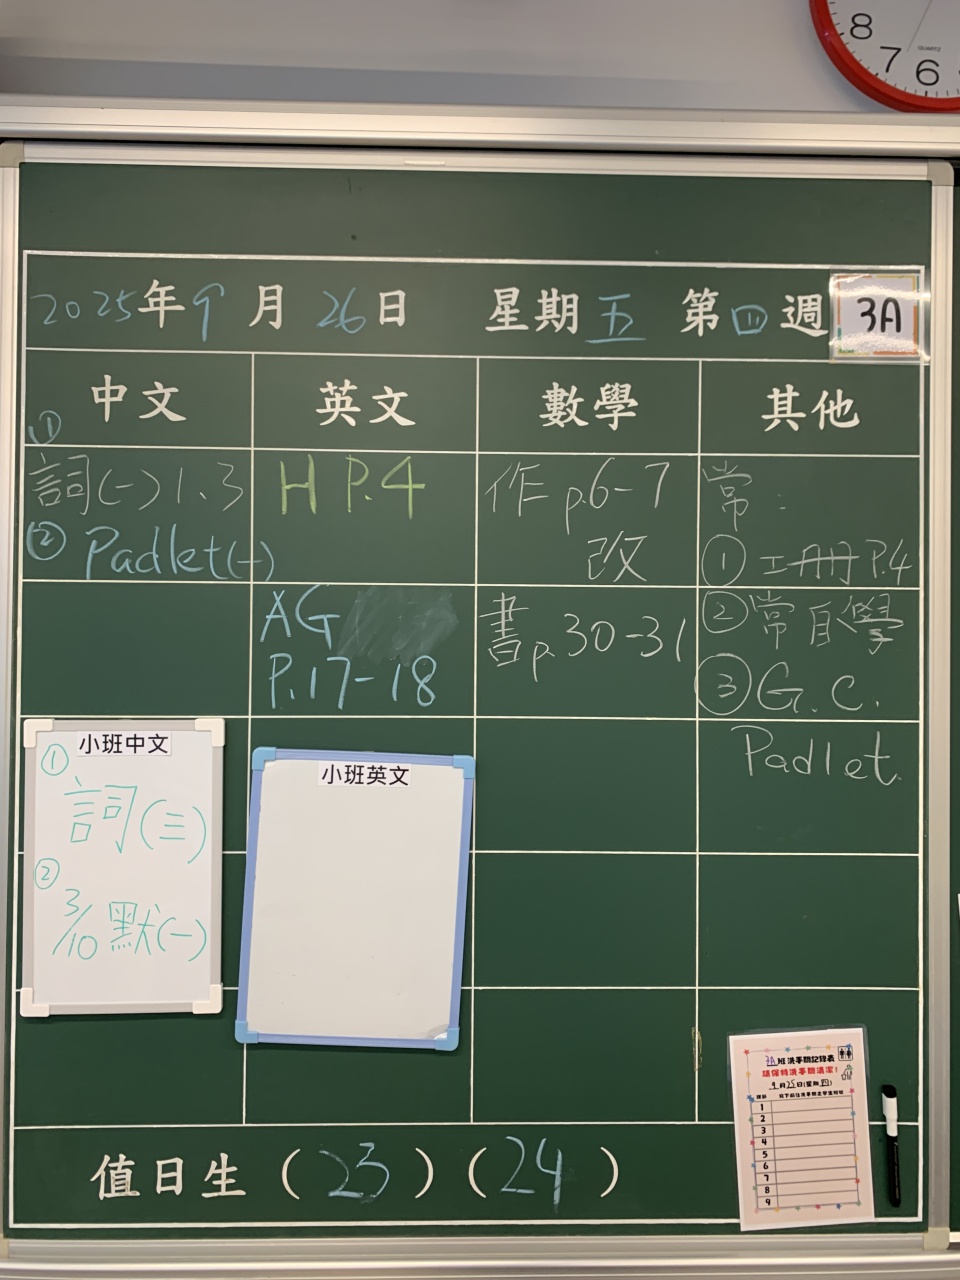 8
7
6
QUARTZ
2025年9月26日 星期五 第四週 3A
中文 英文 數學 其他
① 詞(一)1、3
② Padlet(一)
H P.4
AG
P.17-18
作 p.6-7
改
書 p.30-31
常:
① 工冊 P.4
② 常自學
③ G.C.
Padlet
小班中文
① 詞(三)
② 3/10 默(一)
小班英文
3A班洗手間記錄表
請保持洗手間清潔!
9月25日(星期四)
1
2
3
4
5
6
7
8
9
值日生(23)(24)